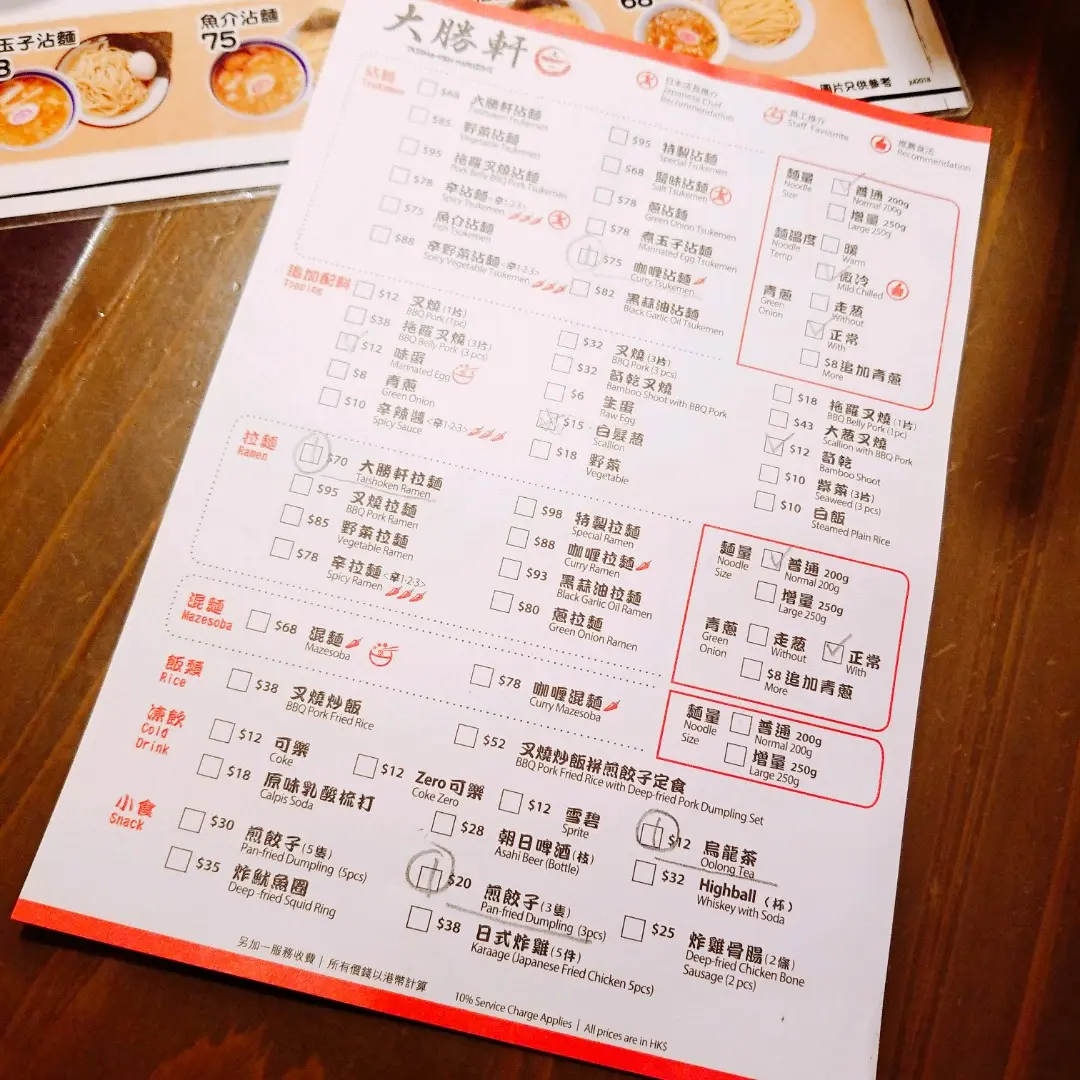 玉子沾麵
魚介沾麵
75
68
圖片只供參考
大勝軒
日本店長推介
Japanese Chef
Recommendation
員工推介
Staff Favourite
推薦食法
Recommendation
沾麵
Tsukemen
$68 大勝軒沾麵
Taishoken Tsukemen
$85 野菜沾麵
Vegetable Tsukemen
$95 拖羅叉燒沾麵
Pork Belly BBQ Pork Tsukemen
$78 辛沾麵<辛1·2·3>
Spicy Tsukemen
$75 魚介沾麵
Fish Tsukemen
$88 辛野菜沾麵<辛1·2·3>
Spicy Vegetable Tsukemen
$95 特製沾麵
Special Tsukemen
$68 鹽味沾麵
Salt Tsukemen
$78 蔥沾麵
Green Onion Tsukemen
$78 煮玉子沾麵
Marinated Egg Tsukemen
$75 咖喱沾麵
Curry Tsukemen
$82 黑蒜油沾麵
Black Garlic Oil Tsukemen
麵量
Noodle
Size
普通 200g
Normal 200g
增量 250g
Large 250g
麵溫度
Noodle
Temp
暖
Warm
微冷
Mild Chilled
青蔥
Green
Onion
走蔥
Without
正常
With
$8 追加青蔥
More
追加配料
Topping
$12 叉燒(1片)
BBQ Pork (1pc)
$38 拖羅叉燒(3片)
BBQ Belly Pork (3 pcs)
$12 味蛋
Marinated Egg
$8 青蔥
Green Onion
$10 辛辣醬<辛1·2·3>
Spicy Sauce
$32 叉燒(3片)
BBQ Pork (3 pcs)
$32 筍乾叉燒
Bamboo Shoot with BBQ Pork
$6 生蛋
Raw Egg
$15 白髮蔥
Scallion
$18 野菜
Vegetable
$18 拖羅叉燒(1片)
BBQ Belly Pork (1pc)
$43 大蔥叉燒
Scallion with BBQ Pork
$12 筍乾
Bamboo Shoot
$10 紫菜(3片)
Seaweed (3 pcs)
$10 白飯
Steamed Plain Rice
拉麵
Ramen
$70 大勝軒拉麵
Taishoken Ramen
$95 叉燒拉麵
BBQ Pork Ramen
$85 野菜拉麵
Vegetable Ramen
$78 辛拉麵<辛1·2·3>
Spicy Ramen
$98 特製拉麵
Special Ramen
$88 咖喱拉麵
Curry Ramen
$93 黑蒜油拉麵
Black Garlic Oil Ramen
$80 蔥拉麵
Green Onion Ramen
麵量
Noodle
Size
普通 200g
Normal 200g
增量 250g
Large 250g
青蔥
Green
Onion
走蔥
Without
正常
With
$8 追加青蔥
More
混麵
Mazesoba
$68 混麵
Mazesoba
$78 咖喱混麵
Curry Mazesoba
麵量
Noodle
Size
普通 200g
Normal 200g
增量 250g
Large 250g
飯類
Rice
$38 叉燒炒飯
BBQ Pork Fried Rice
$52 叉燒炒飯拼煎餃子定食
BBQ Pork Fried Rice with Deep-fried Pork Dumpling Set
凍飲
Cold
Drink
$12 可樂
Coke
$12 Zero可樂
Coke Zero
$12 雪碧
Sprite
$12 烏龍茶
Oolong Tea
$18 原味乳酸梳打
Calpis Soda
$28 朝日啤酒(枝)
Asahi Beer (Bottle)
$32 Highball（杯）
Whiskey with Soda
小食
Snack
$30 煎餃子(5隻)
Pan-fried Dumpling (5pcs)
$20 煎餃子(3隻)
Pan-fried Dumpling (3pcs)
$25 炸雞骨腸(2條)
Deep-fried Chicken Bone
Sausage (2 pcs)
$35 炸魷魚圈
Deep-fried Squid Ring
$38 日式炸雞(5件)
Karaage (Japanese Fried Chicken 5pcs)
另加一服務收費 | 所有價錢以港幣計算
10% Service Charge Applies | All prices are in HK$